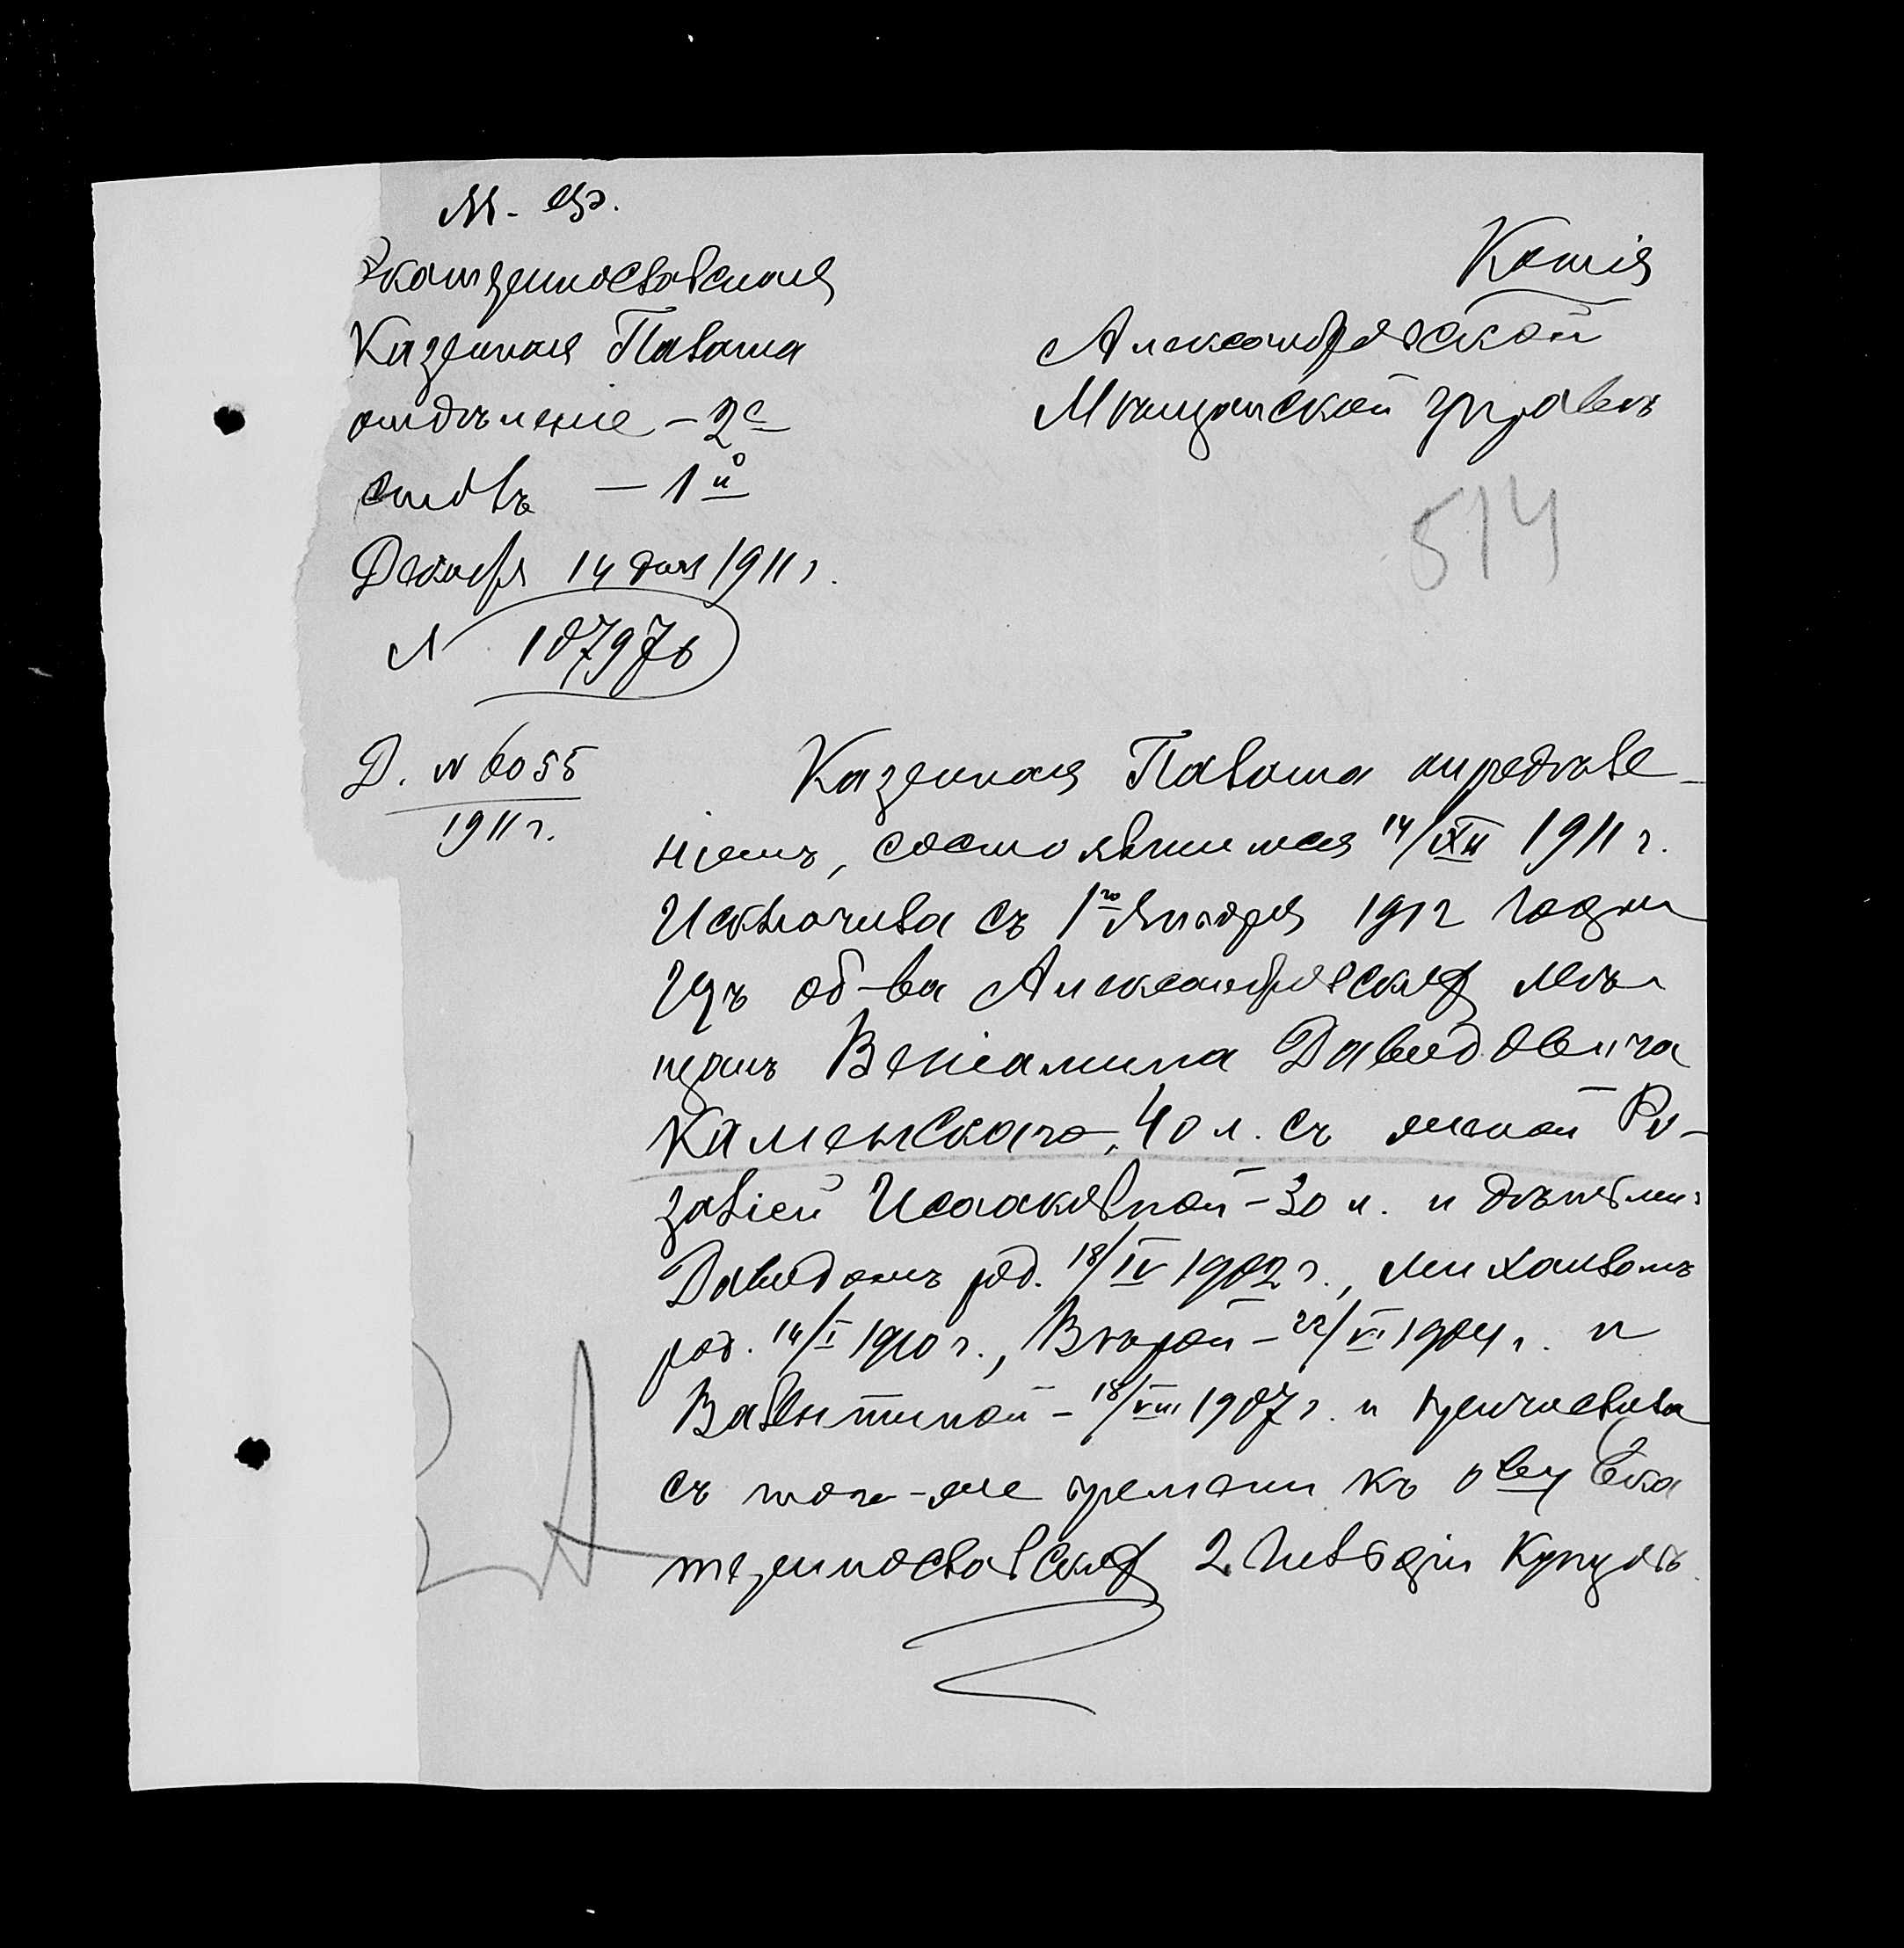 М. Ф.
Екатеринославская
Казенная Палата
отдѣленіе – 2е
столъ – 1й
Декабря 14 дня 1911 г.
N 107976
Д. N 6055
1911 г.
Копія
Александровской
Мѣщанской Управѣ
514
Казенная Палата опредѣле-
ніемъ, состоявшимся 14/XII 1911 г.
Исключила съ 1го Января 1912 года
Изъ об-ва Александровскихъ мѣ-
щанъ Веніамина Давидовича
Каменскаго, 40 л. съ женой Ро-
заліей Исааковной – 30 л. и дѣтьми:
Давидомъ род. 18/IV 1902 г., Михаиломъ
род. 14/I 1910 г., Вѣрой – 22/VI 1904 г. и
Валентиной – 18/VIII 1907 г. и причислила
съ того-же времени къ о-ву Ека
теринославскихъ 2 гильдіи Купцовъ